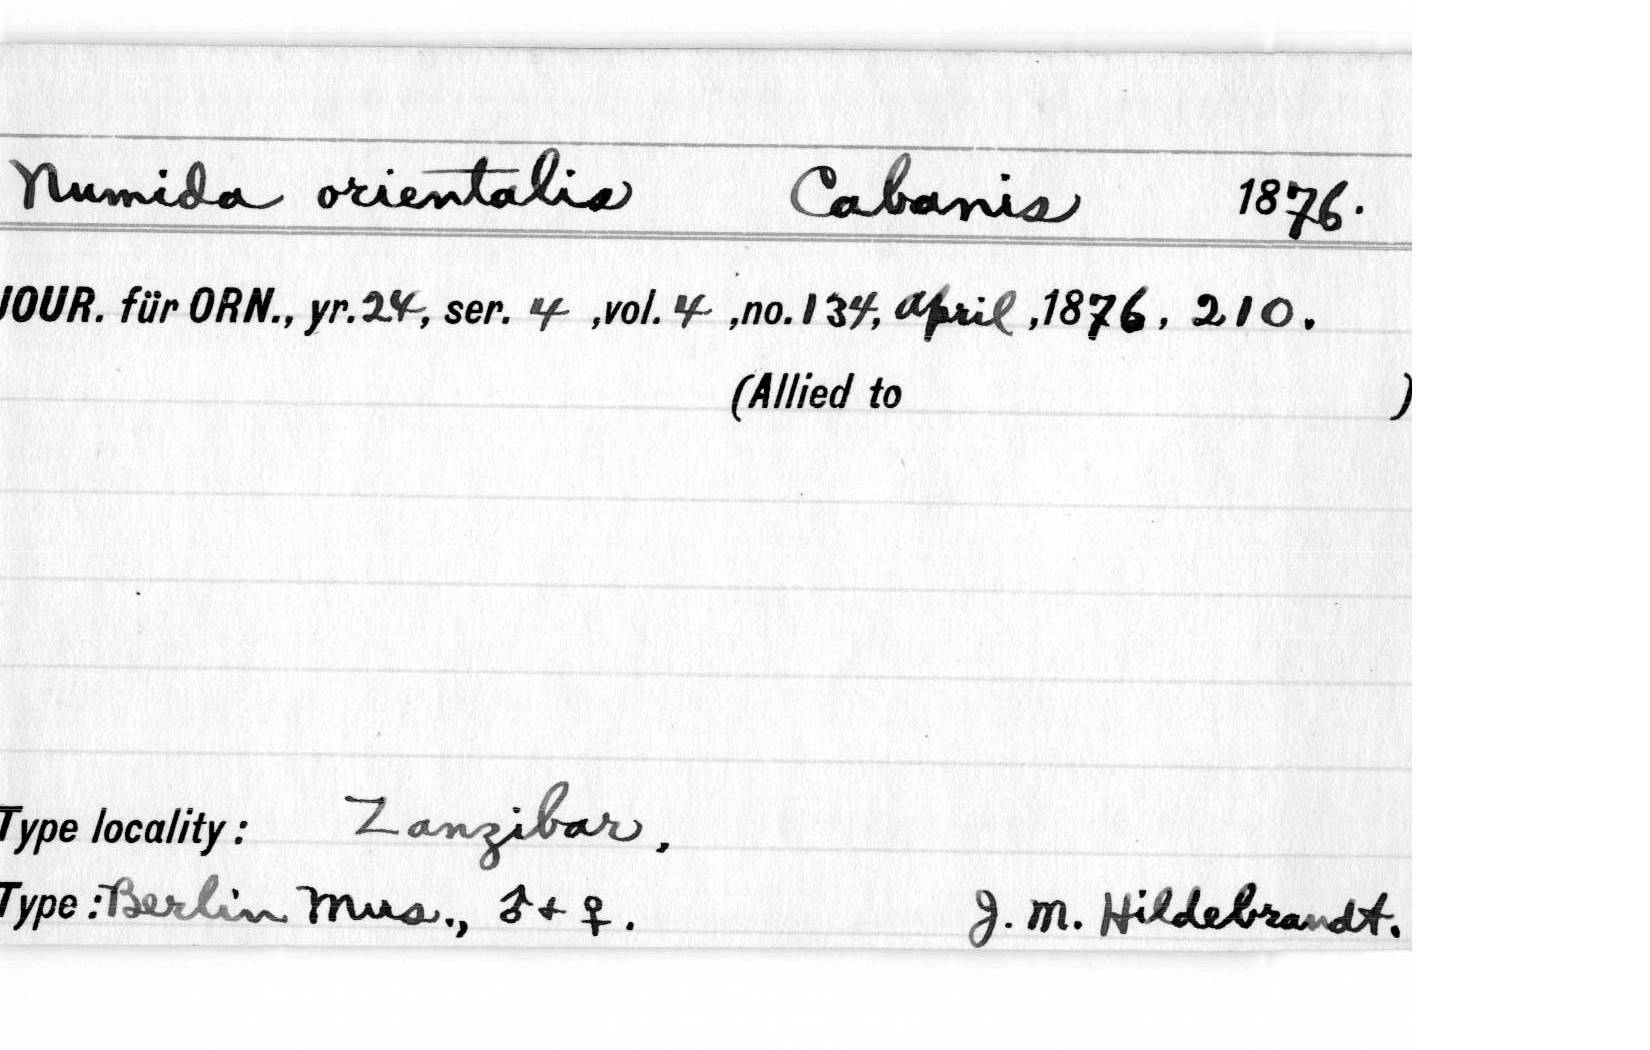 Numida orientalis Cabanis 1876.
JOUR. für ORN., yr.24, ser. 4 ,vol. 4 ,no.134, april ,1876, 210.
(Allied to )
Type locality: Zanzibar,
Type: Berlin Mus., ♂+♀. J. M. Hildebrandt.